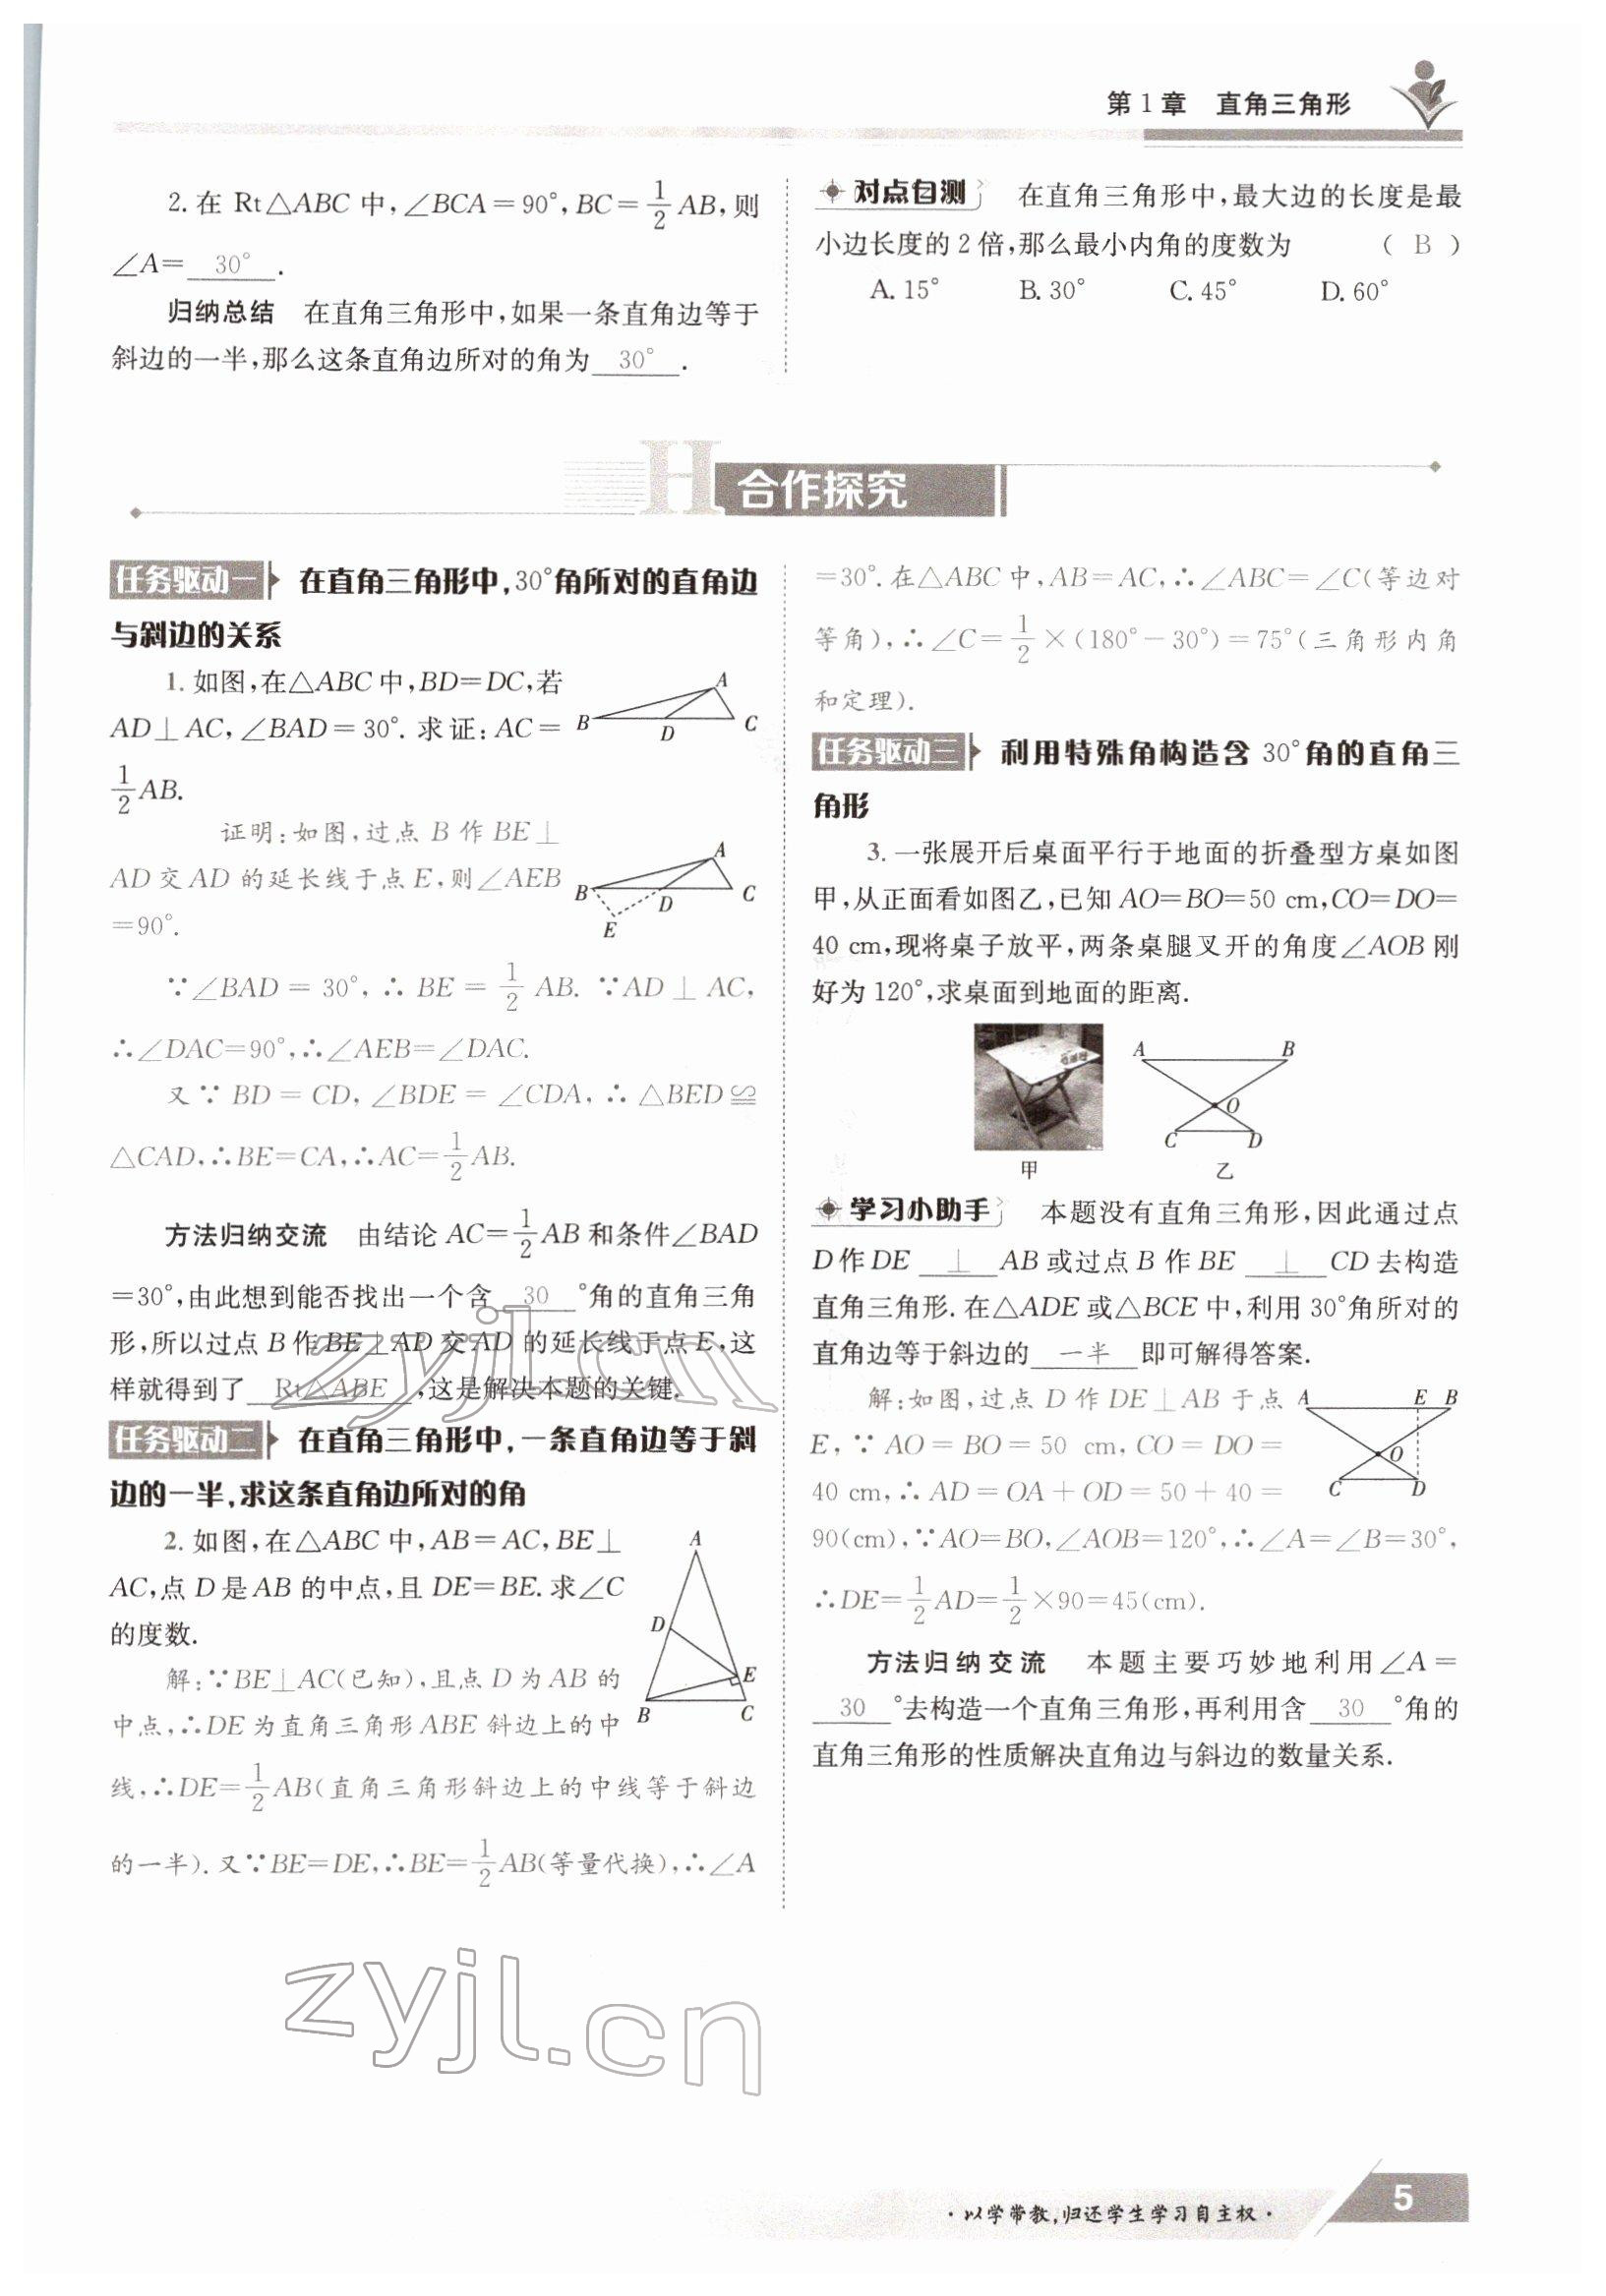 第1章 直角三角形
2. 在 Rt△ABC 中,∠BCA=90°,BC=1/2 AB,则
∠A= 30° .
归纳总结 在直角三角形中,如果一条直角边等于
斜边的一半,那么这条直角边所对的角为 30° .
对点自测 在直角三角形中,最大边的长度是最
小边长度的 2 倍,那么最小内角的度数为 ( B )
A. 15° B. 30° C. 45° D. 60°
H 合作探究
任务驱动一 在直角三角形中,30°角所对的直角边
与斜边的关系
1. 如图,在△ABC 中,BD=DC,若
AD⊥AC,∠BAD=30°. 求证:AC=
1/2 AB.
A B D C
证明:如图,过点 B 作 BE⊥
AD 交 AD 的延长线于点 E,则∠AEB
=90°.
A B D C E
∵∠BAD=30°,∴BE=1/2 AB. ∵AD⊥AC,
∴∠DAC=90°,∴∠AEB=∠DAC.
又∵BD=CD,∠BDE=∠CDA,∴△BED≌
△CAD,∴BE=CA,∴AC=1/2 AB.
方法归纳交流 由结论 AC=1/2 AB 和条件∠BAD
=30°,由此想到能否找出一个含 30 °角的直角三角
形,所以过点 B 作 BE⊥AD 交 AD 的延长线于点 E,这
样就得到了 Rt△ABE ,这是解决本题的关键.
任务驱动二 在直角三角形中,一条直角边等于斜
边的一半,求这条直角边所对的角
2. 如图,在△ABC 中,AB=AC,BE⊥
AC,点 D 是 AB 的中点,且 DE=BE. 求∠C
的度数.
A D E B C
解:∵BE⊥AC(已知),且点 D 为 AB 的
中点,∴DE 为直角三角形 ABE 斜边上的中
线,∴DE=1/2 AB(直角三角形斜边上的中线等于斜边
的一半). 又∵BE=DE,∴BE=1/2 AB(等量代换),∴∠A
=30°. 在△ABC 中,AB=AC,∴∠ABC=∠C(等边对
等角),∴∠C=1/2×(180°-30°)=75°(三角形内角
和定理).
任务驱动三 利用特殊角构造含 30°角的直角三
角形
3. 一张展开后桌面平行于地面的折叠型方桌如图
甲,从正面看如图乙,已知 AO=BO=50 cm,CO=DO=
40 cm,现将桌子放平,两条桌腿叉开的角度∠AOB 刚
好为 120°,求桌面到地面的距离.
A B O C D
甲 乙
学习小助手 本题没有直角三角形,因此通过点
D 作 DE ⊥ AB 或过点 B 作 BE ⊥ CD 去构造
直角三角形. 在△ADE 或△BCE 中,利用 30°角所对的
直角边等于斜边的 一半 即可解得答案.
解:如图,过点 D 作 DE⊥AB 于点
E,∵AO=BO=50 cm,CO=DO=
40 cm,∴AD=OA+OD=50+40=
A E B O C D
90(cm),∵AO=BO,∠AOB=120°,∴∠A=∠B=30°,
∴DE=1/2 AD=1/2×90=45(cm).
方法归纳交流 本题主要巧妙地利用∠A=
30 °去构造一个直角三角形,再利用含 30 °角的
直角三角形的性质解决直角边与斜边的数量关系.
zyjl.cn
zyjl.cn
·以学带教,归还学生学习自主权·
5